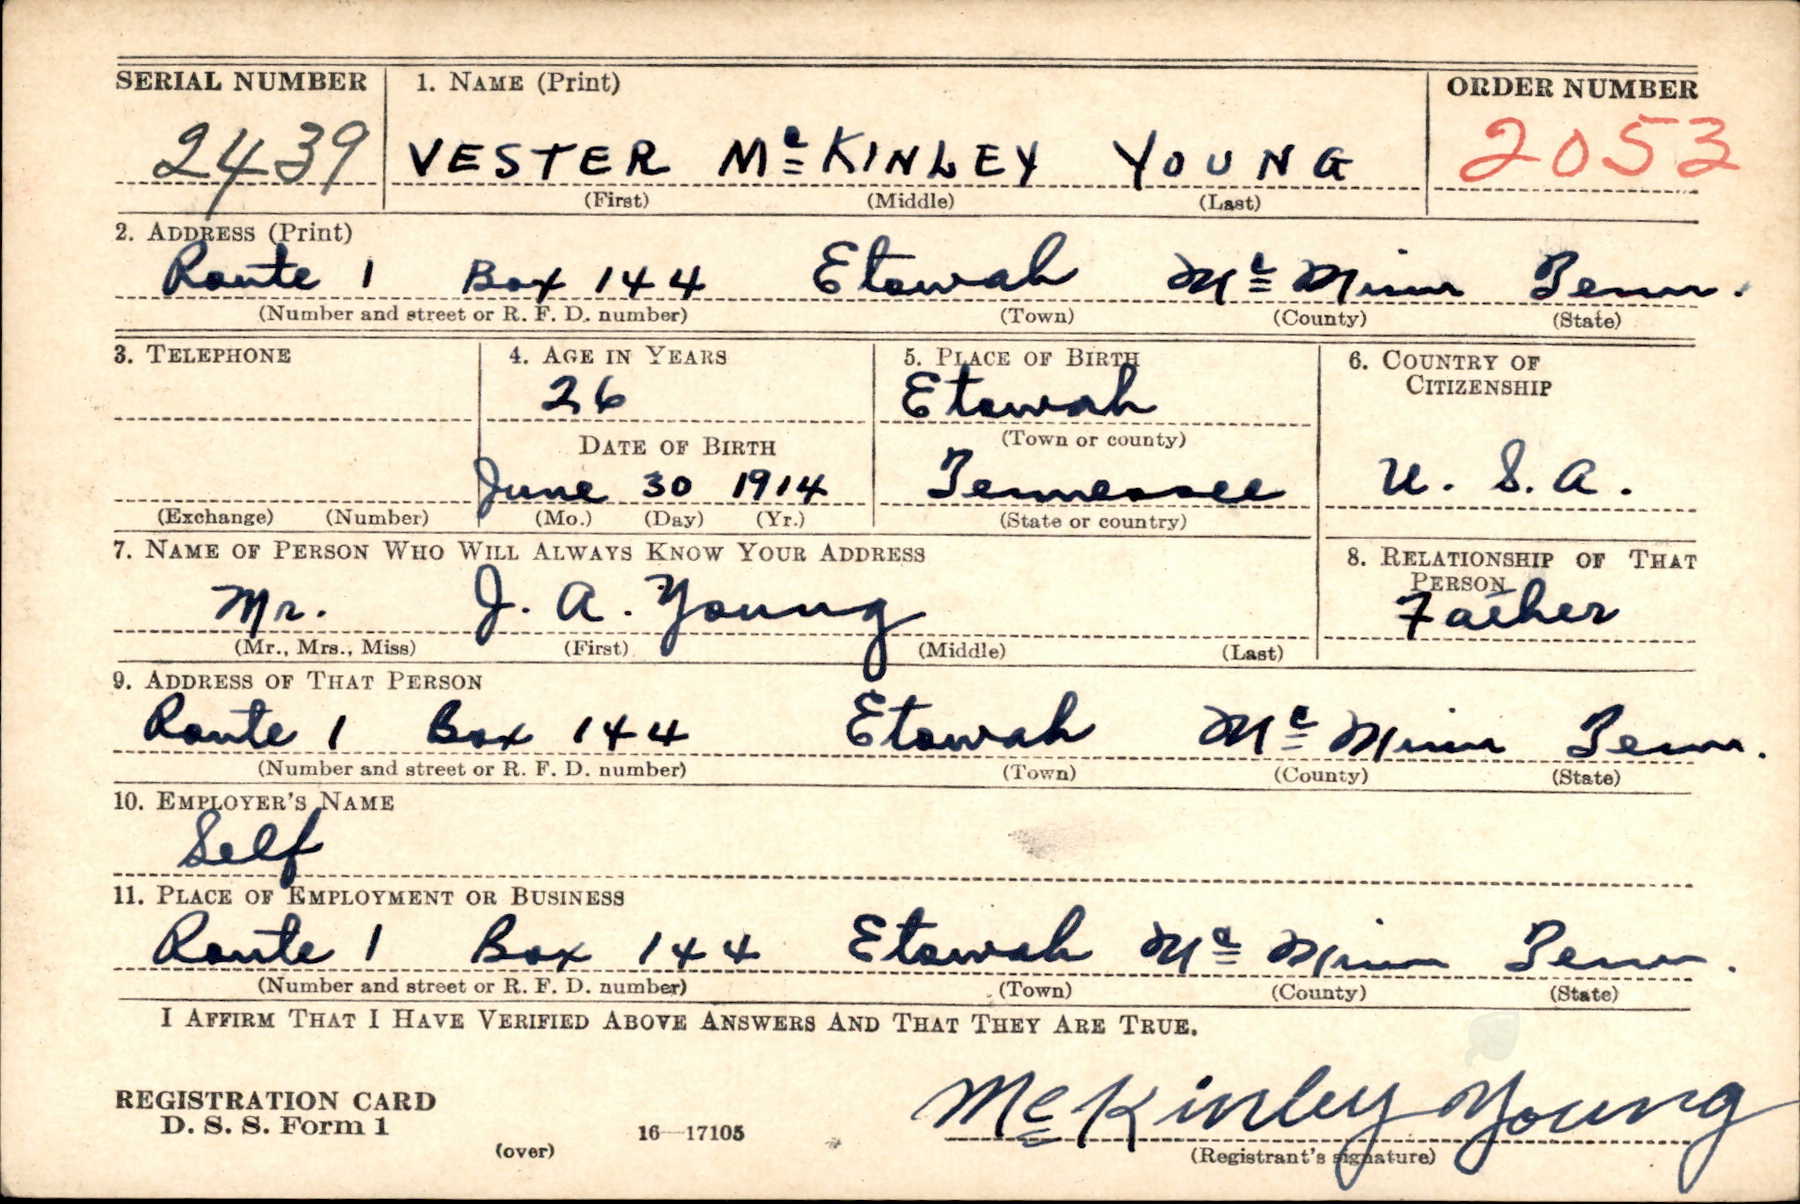 SERIAL NUMBER 1. NAME (Print) ORDER NUMBER
2439 VESTER McKINLEY YOUNG 2053
(First) (Middle) (Last)
2. ADDRESS (Print)
Route 1 Box 144 Etowah McMinn Tenn.
(Number and street or R. F. D. number) (Town) (County) (State)
3. TELEPHONE 4. AGE IN YEARS 5. PLACE OF BIRTH 6. COUNTRY OF CITIZENSHIP
26 Etowah
DATE OF BIRTH (Town or county)
June 30 1914 Tennessee U. S. A.
(Exchange) (Number) (Mo.) (Day) (Yr.) (State or country)
7. NAME OF PERSON WHO WILL ALWAYS KNOW YOUR ADDRESS 8. RELATIONSHIP OF THAT PERSON
Mr. J. A. Young Father
(Mr., Mrs., Miss) (First) (Middle) (Last)
9. ADDRESS OF THAT PERSON
Route 1 Box 144 Etowah McMinn Tenn.
(Number and street or R. F. D. number) (Town) (County) (State)
10. EMPLOYER'S NAME
Self
11. PLACE OF EMPLOYMENT OR BUSINESS
Route 1 Box 144 Etowah McMinn Tenn.
(Number and street or R. F. D. number) (Town) (County) (State)
I AFFIRM THAT I HAVE VERIFIED ABOVE ANSWERS AND THAT THEY ARE TRUE.
REGISTRATION CARD
D. S. S. Form 1
(over) 16—17105
McKinley Young
(Registrant's signature)